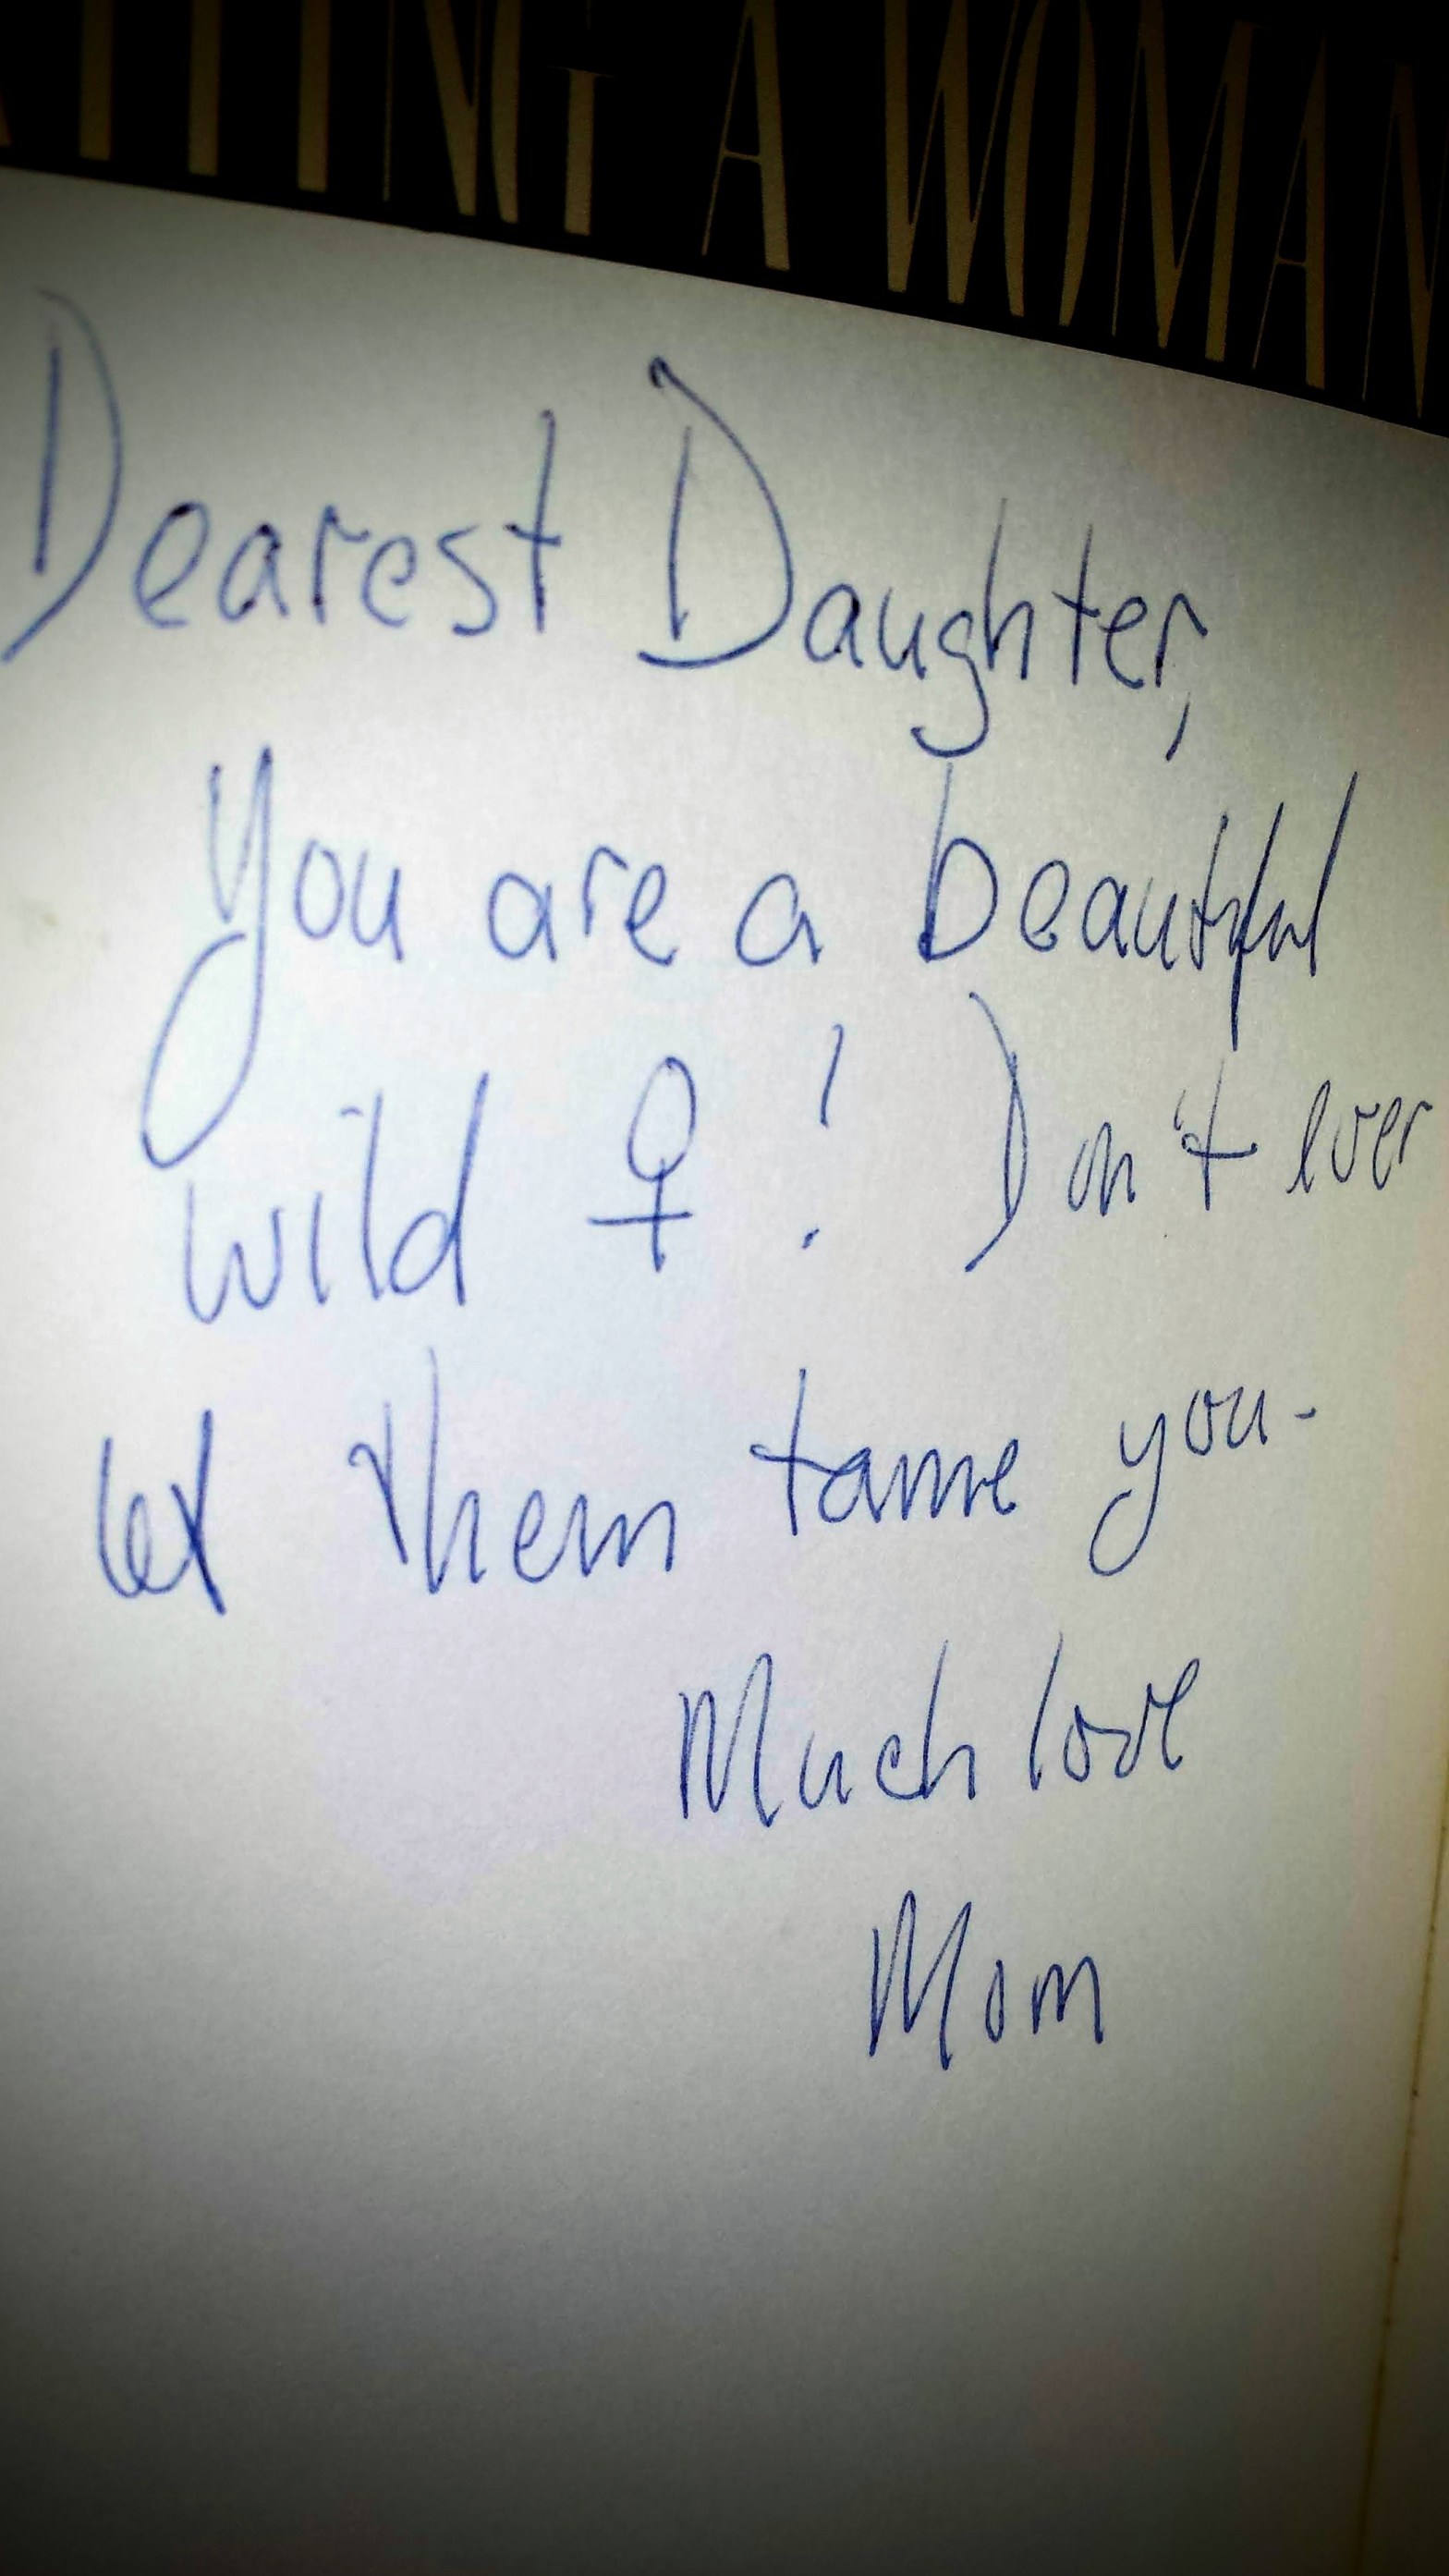 ITING A WOMAN
Dearest Daughter,
You are a beautiful
wild ♀! Don't ever
let them tame you-
Much love
Mom